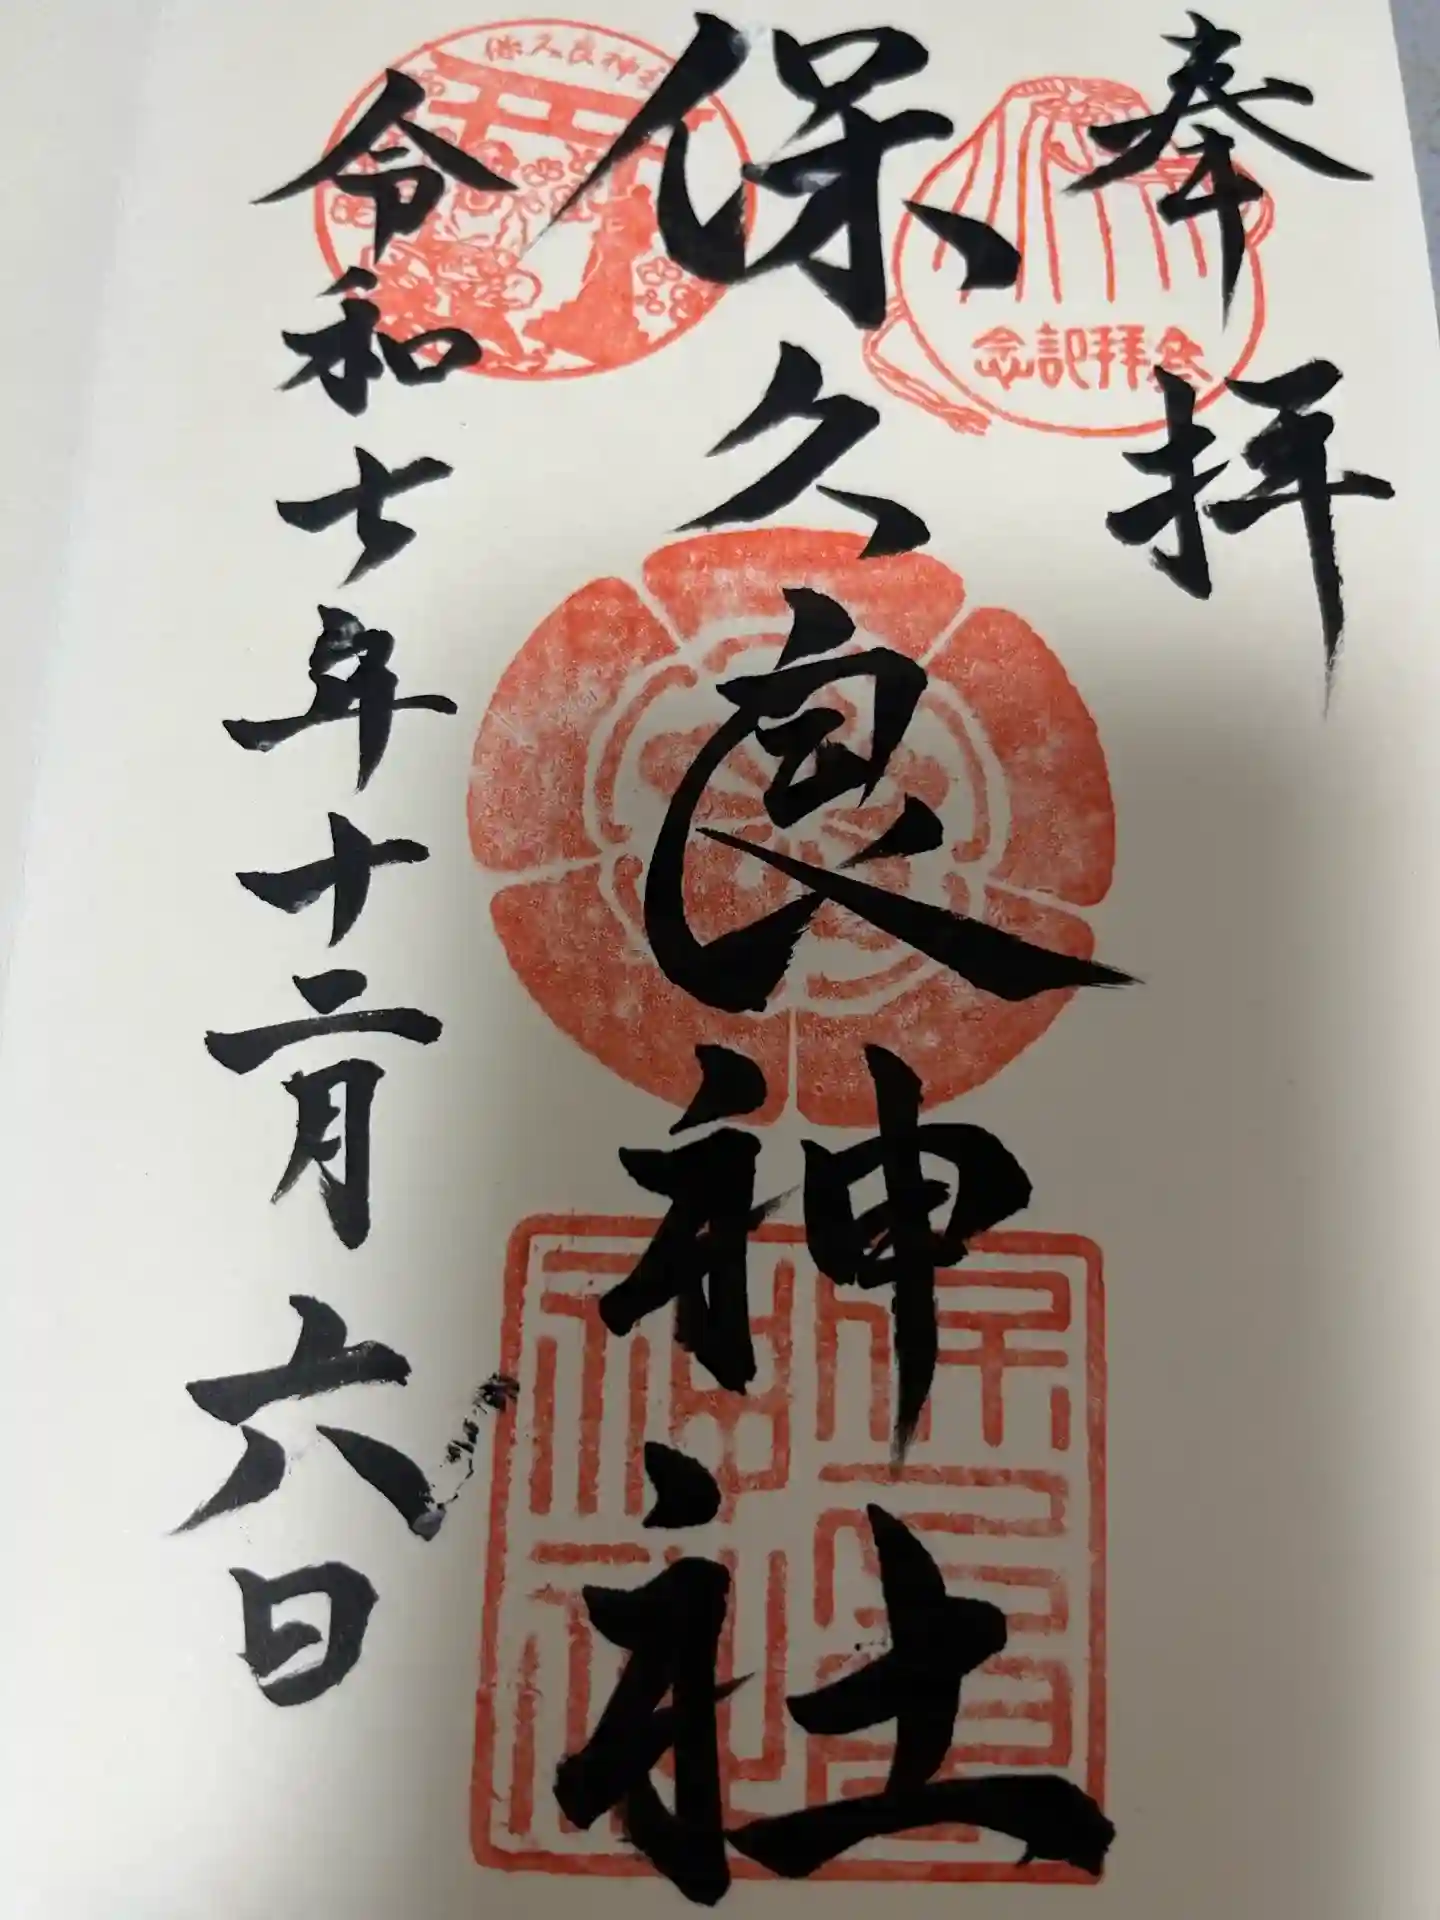 奉拝
参拝記念
保久良神社
保久良神社
保久良神社
令和七年十二月六日